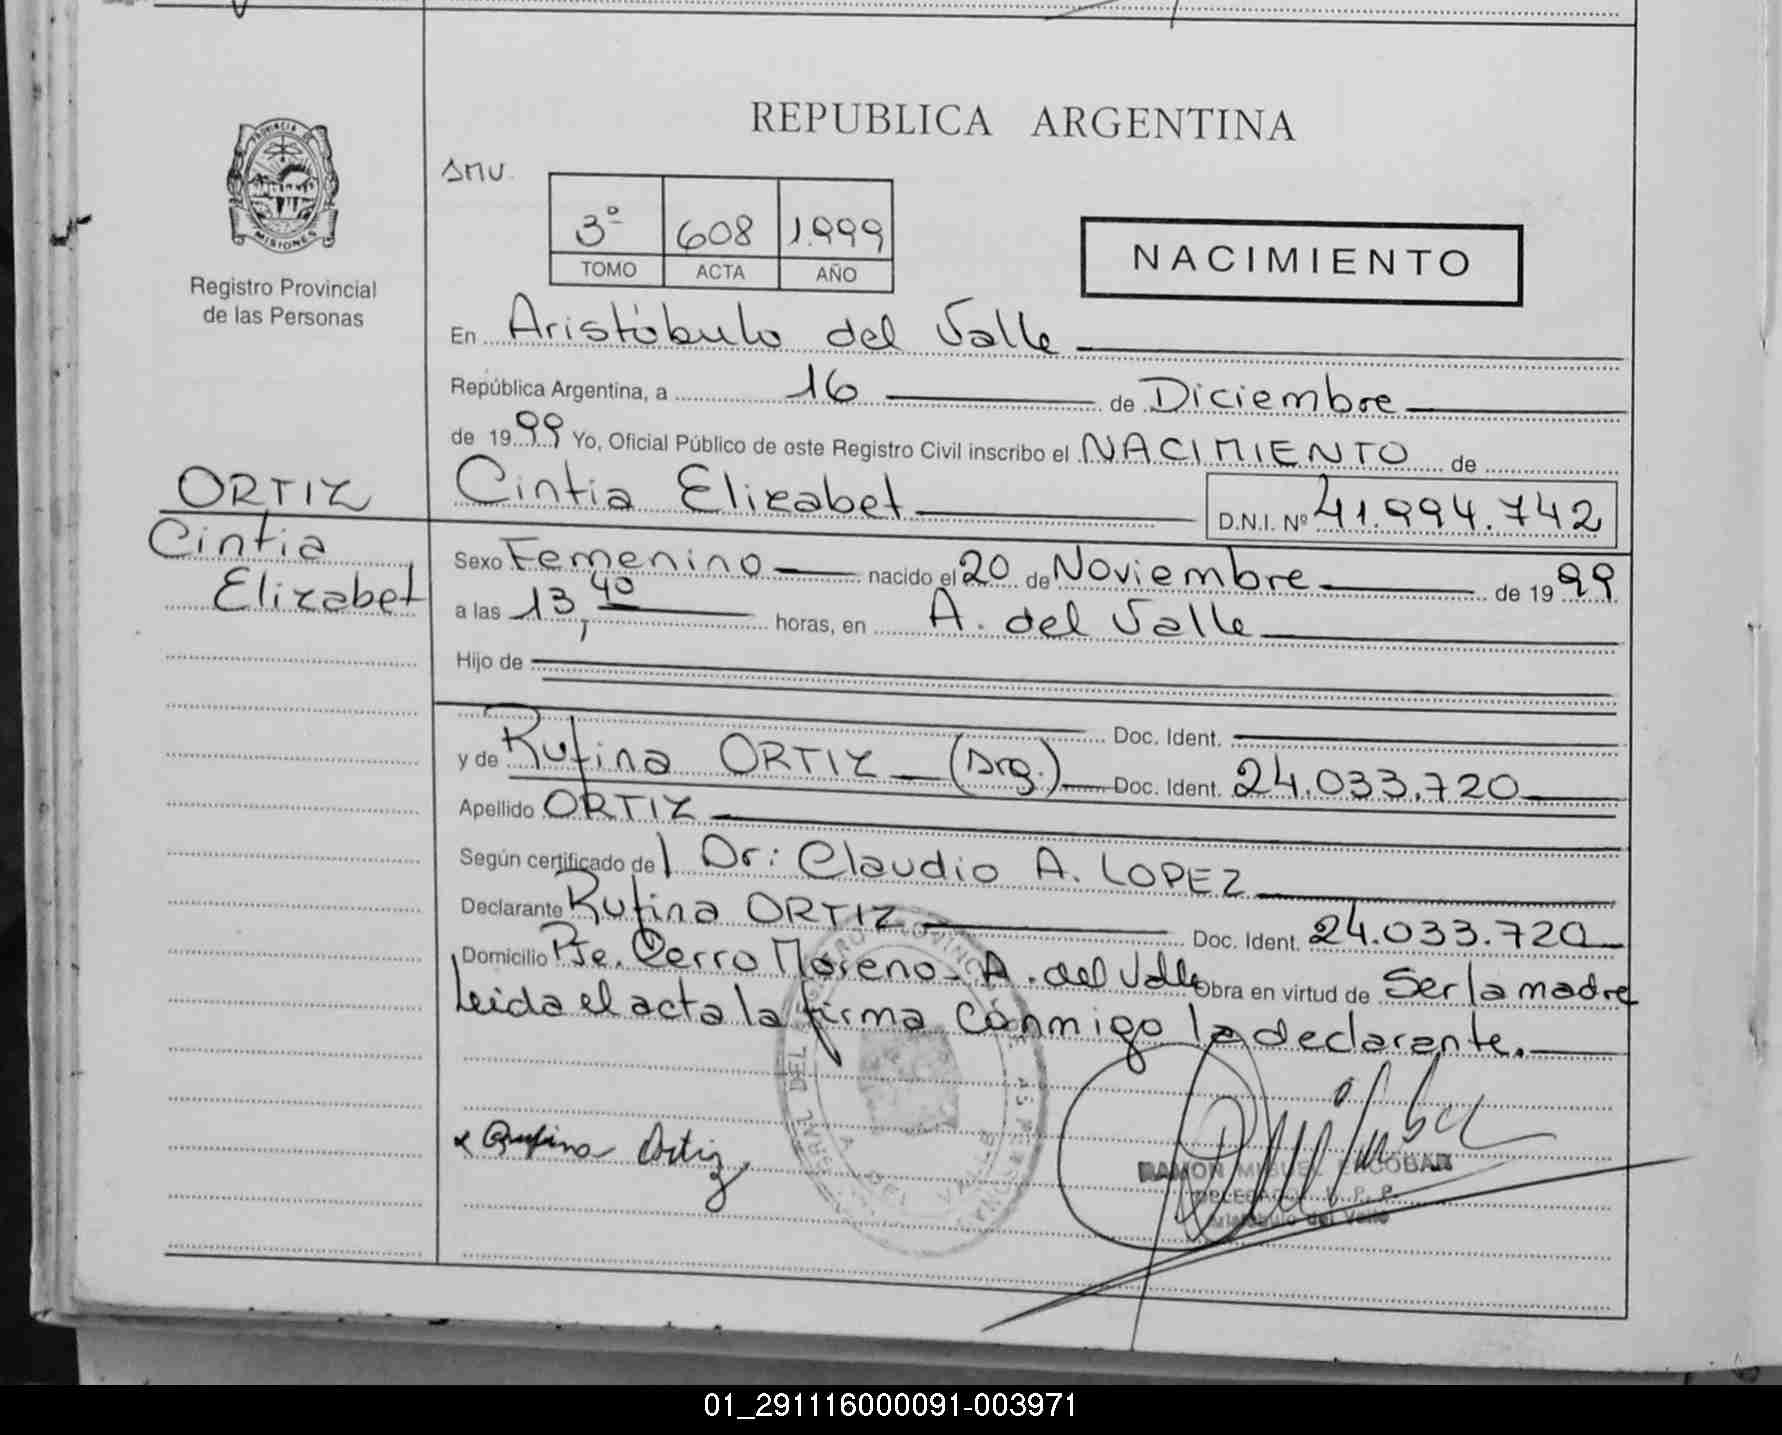 REPUBLICA ARGENTINA
PROVINCIA DE
MISIONES
Registro Provincial
de las Personas
SMU.
3º 608 1.999
TOMO ACTA AÑO
NACIMIENTO
En Aristóbulo del Valle
República Argentina, a 16 de Diciembre
de 1999 Yo, Oficial Público de este Registro Civil inscribo el NACIMIENTO de
Cintia Elizabet D.N.I. Nº 41.994.742
ORTIZ
Cintia
Elizabet
Sexo Femenino nacido el 20 de Noviembre de 1999
a las 13,40 horas, en A. del Valle
Hijo de
Doc. Ident.
y de Rufina ORTIZ (Arg.) Doc. Ident. 24.033.720
Apellido ORTIZ
Según certificado de l Dr: Claudio A. LOPEZ
Declarante Rufina ORTIZ Doc. Ident. 24.033.720
Domicilio Pje. Cerro Moreno - A. del Valle Obra en virtud de Ser la madre
Leida el acta la firma conmigo la declarante.
x Rufina Ortiz
RAMON MIGUEL ESCOBAR
DELEGADO R. P. P.
Aristóbulo del Valle
01_291116000091-003971